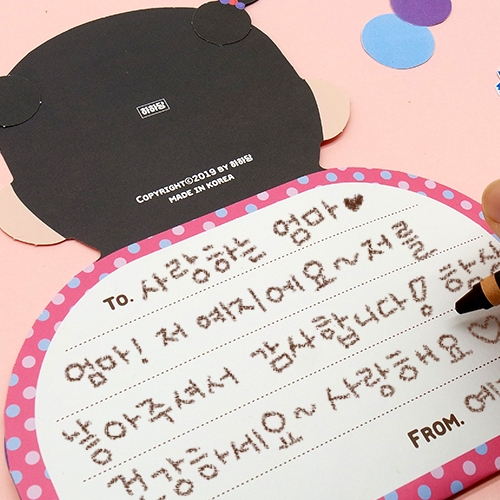 하하당
COPYRIGHT©2019 BY 하하당
MADE IN KOREA
TO. 사랑하는 엄마♥
엄마! 저 예지에요~저를
낳아주셔서 감사합니다! 항상
건강하세요~ 사랑해요♡
FROM. 예